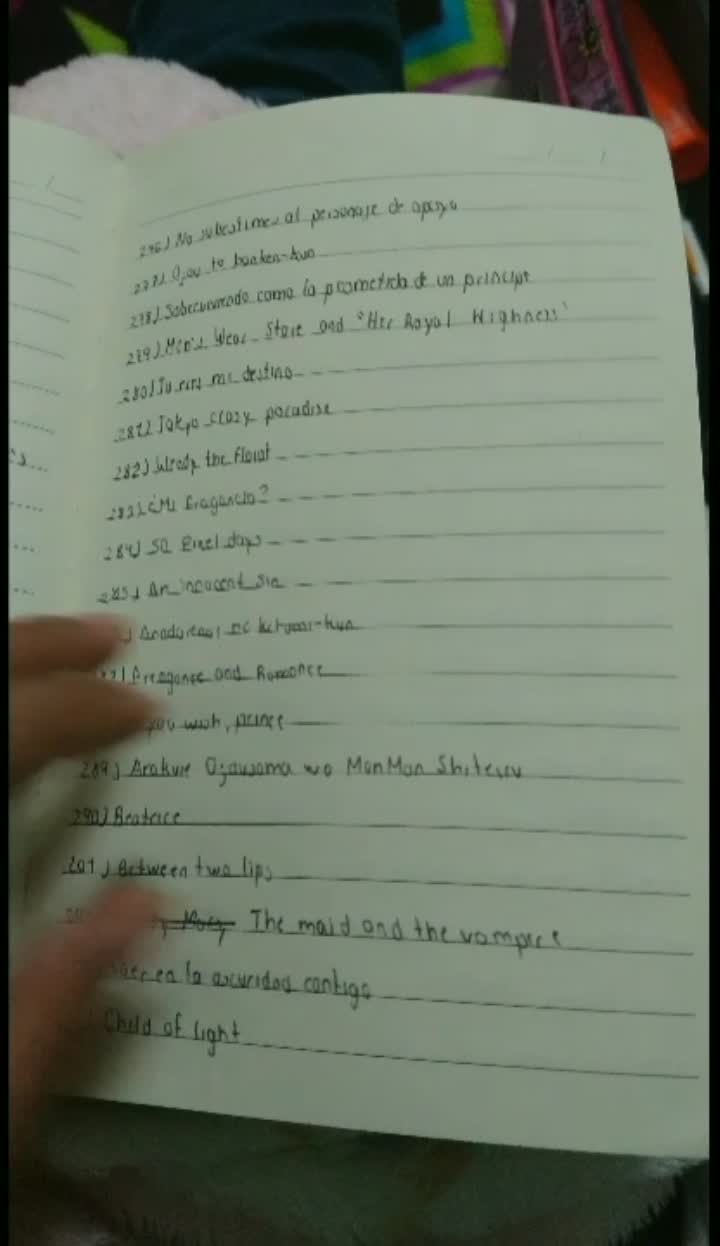 276) No subestimes al personaje de apoyo
277) Ojou to banken-kun
278) Sobreviviendo como la prometida de un principe
279) Men's Wear Store and "Her Royal Highness"
280) Tu eres mi destino
281) Tokyo crazy paradise
282) the florist
283) ¿Mi fragancia?
284) SQ Begin days
285) An innocent sin
) no kun
) Arrogance and Romance
you wish, prince
289) Arakure Ojousama wo MonMon Shiteiru
290) Beatrice
291) Between two lips
The maid and the vampire
en la oscuridad contigo
Child of light